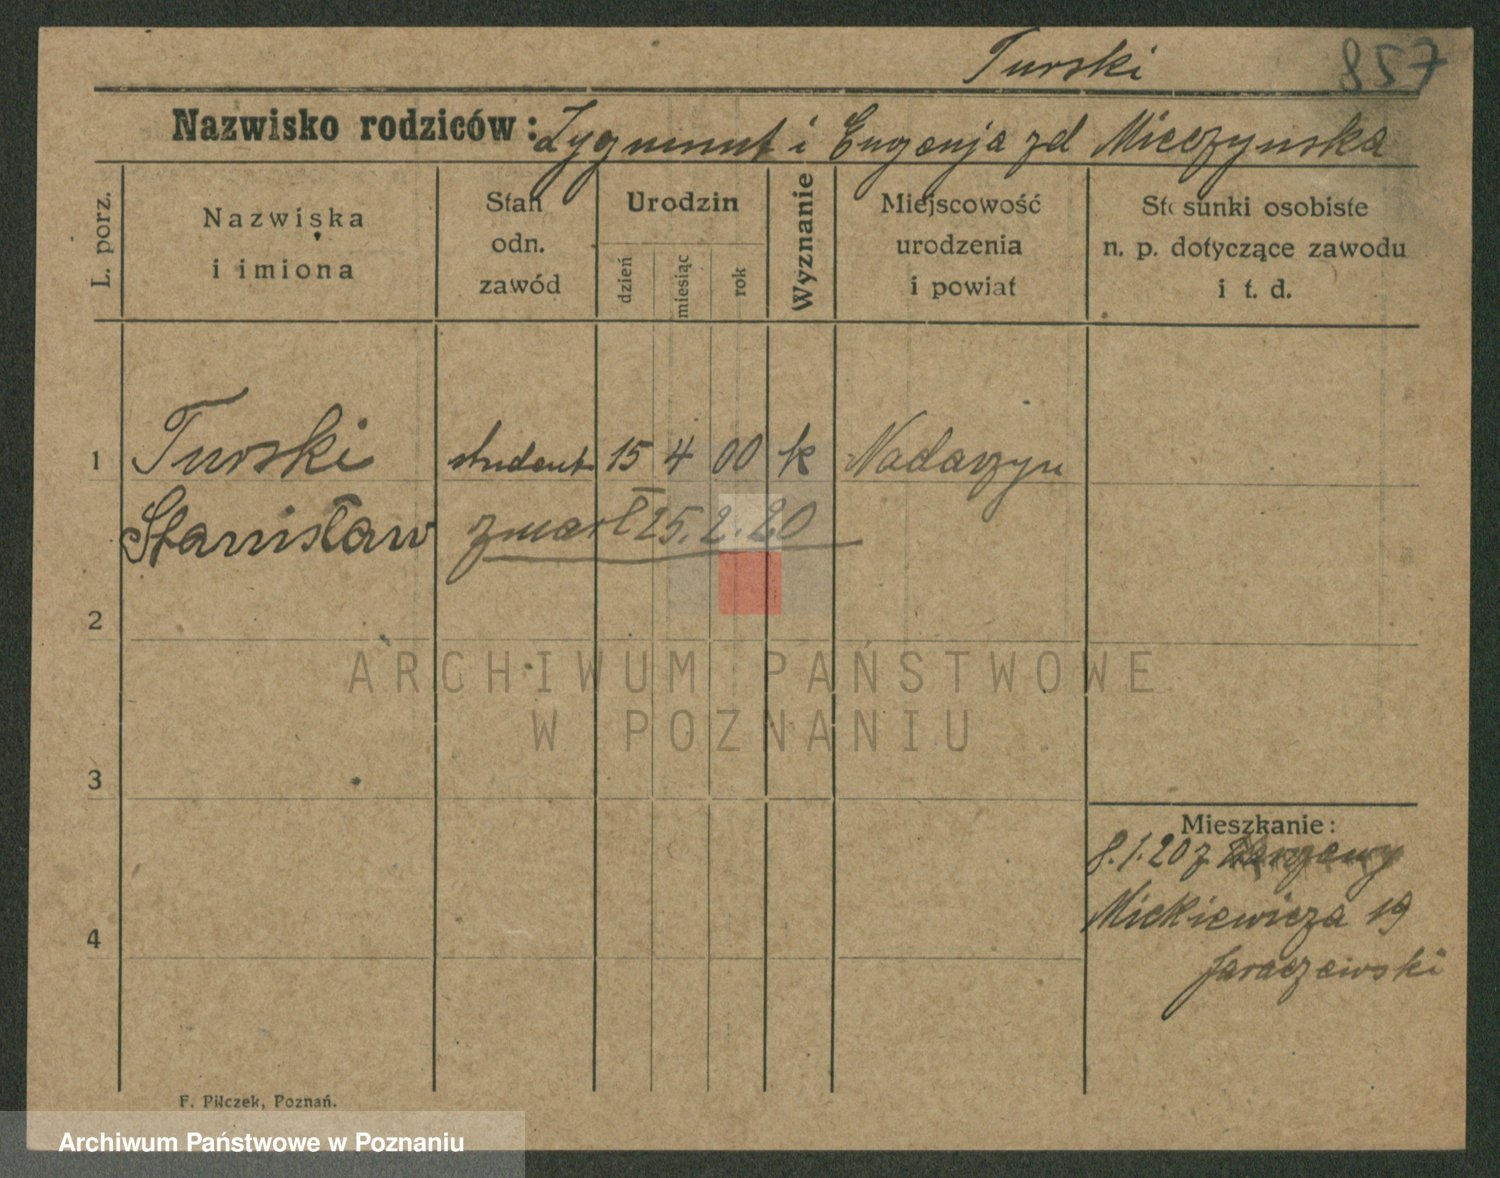 Turski
857
Nazwisko rodziców: Zygmunt i Eugenja zd Mieczynska
L. porz.
Nazwiska
i imiona
Stan
odn.
zawód
Urodzin
dzień
miesiąc
rok
Wyznanie
Miejscowość
urodzenia
i powiat
Stosunki osobiste
n. p. dotyczące zawodu
i t. d.
1 Turski student 15 4 00 k Nadarzyn
Stanisław zmarł 25.2.20
2
ARCHIWUM PAŃSTWOWE
W POZNANIU
3
Mieszkanie:
8.1.20 z
Mickiewicza 19
4
Jaraczewski
F. Pilczek, Poznań.
Archiwum Państwowe w Poznaniu